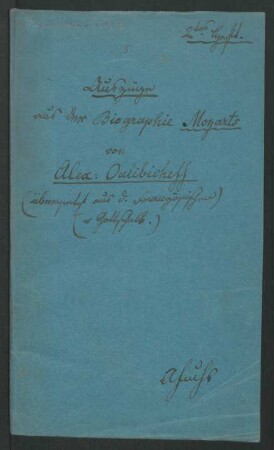 2tes Heft.
Auszüge
aus der Biographie Mozarts
von
Alex: Oulibicheff
(übersetzt aus d. französischen)
(v Gottschalk.)
AFuchs